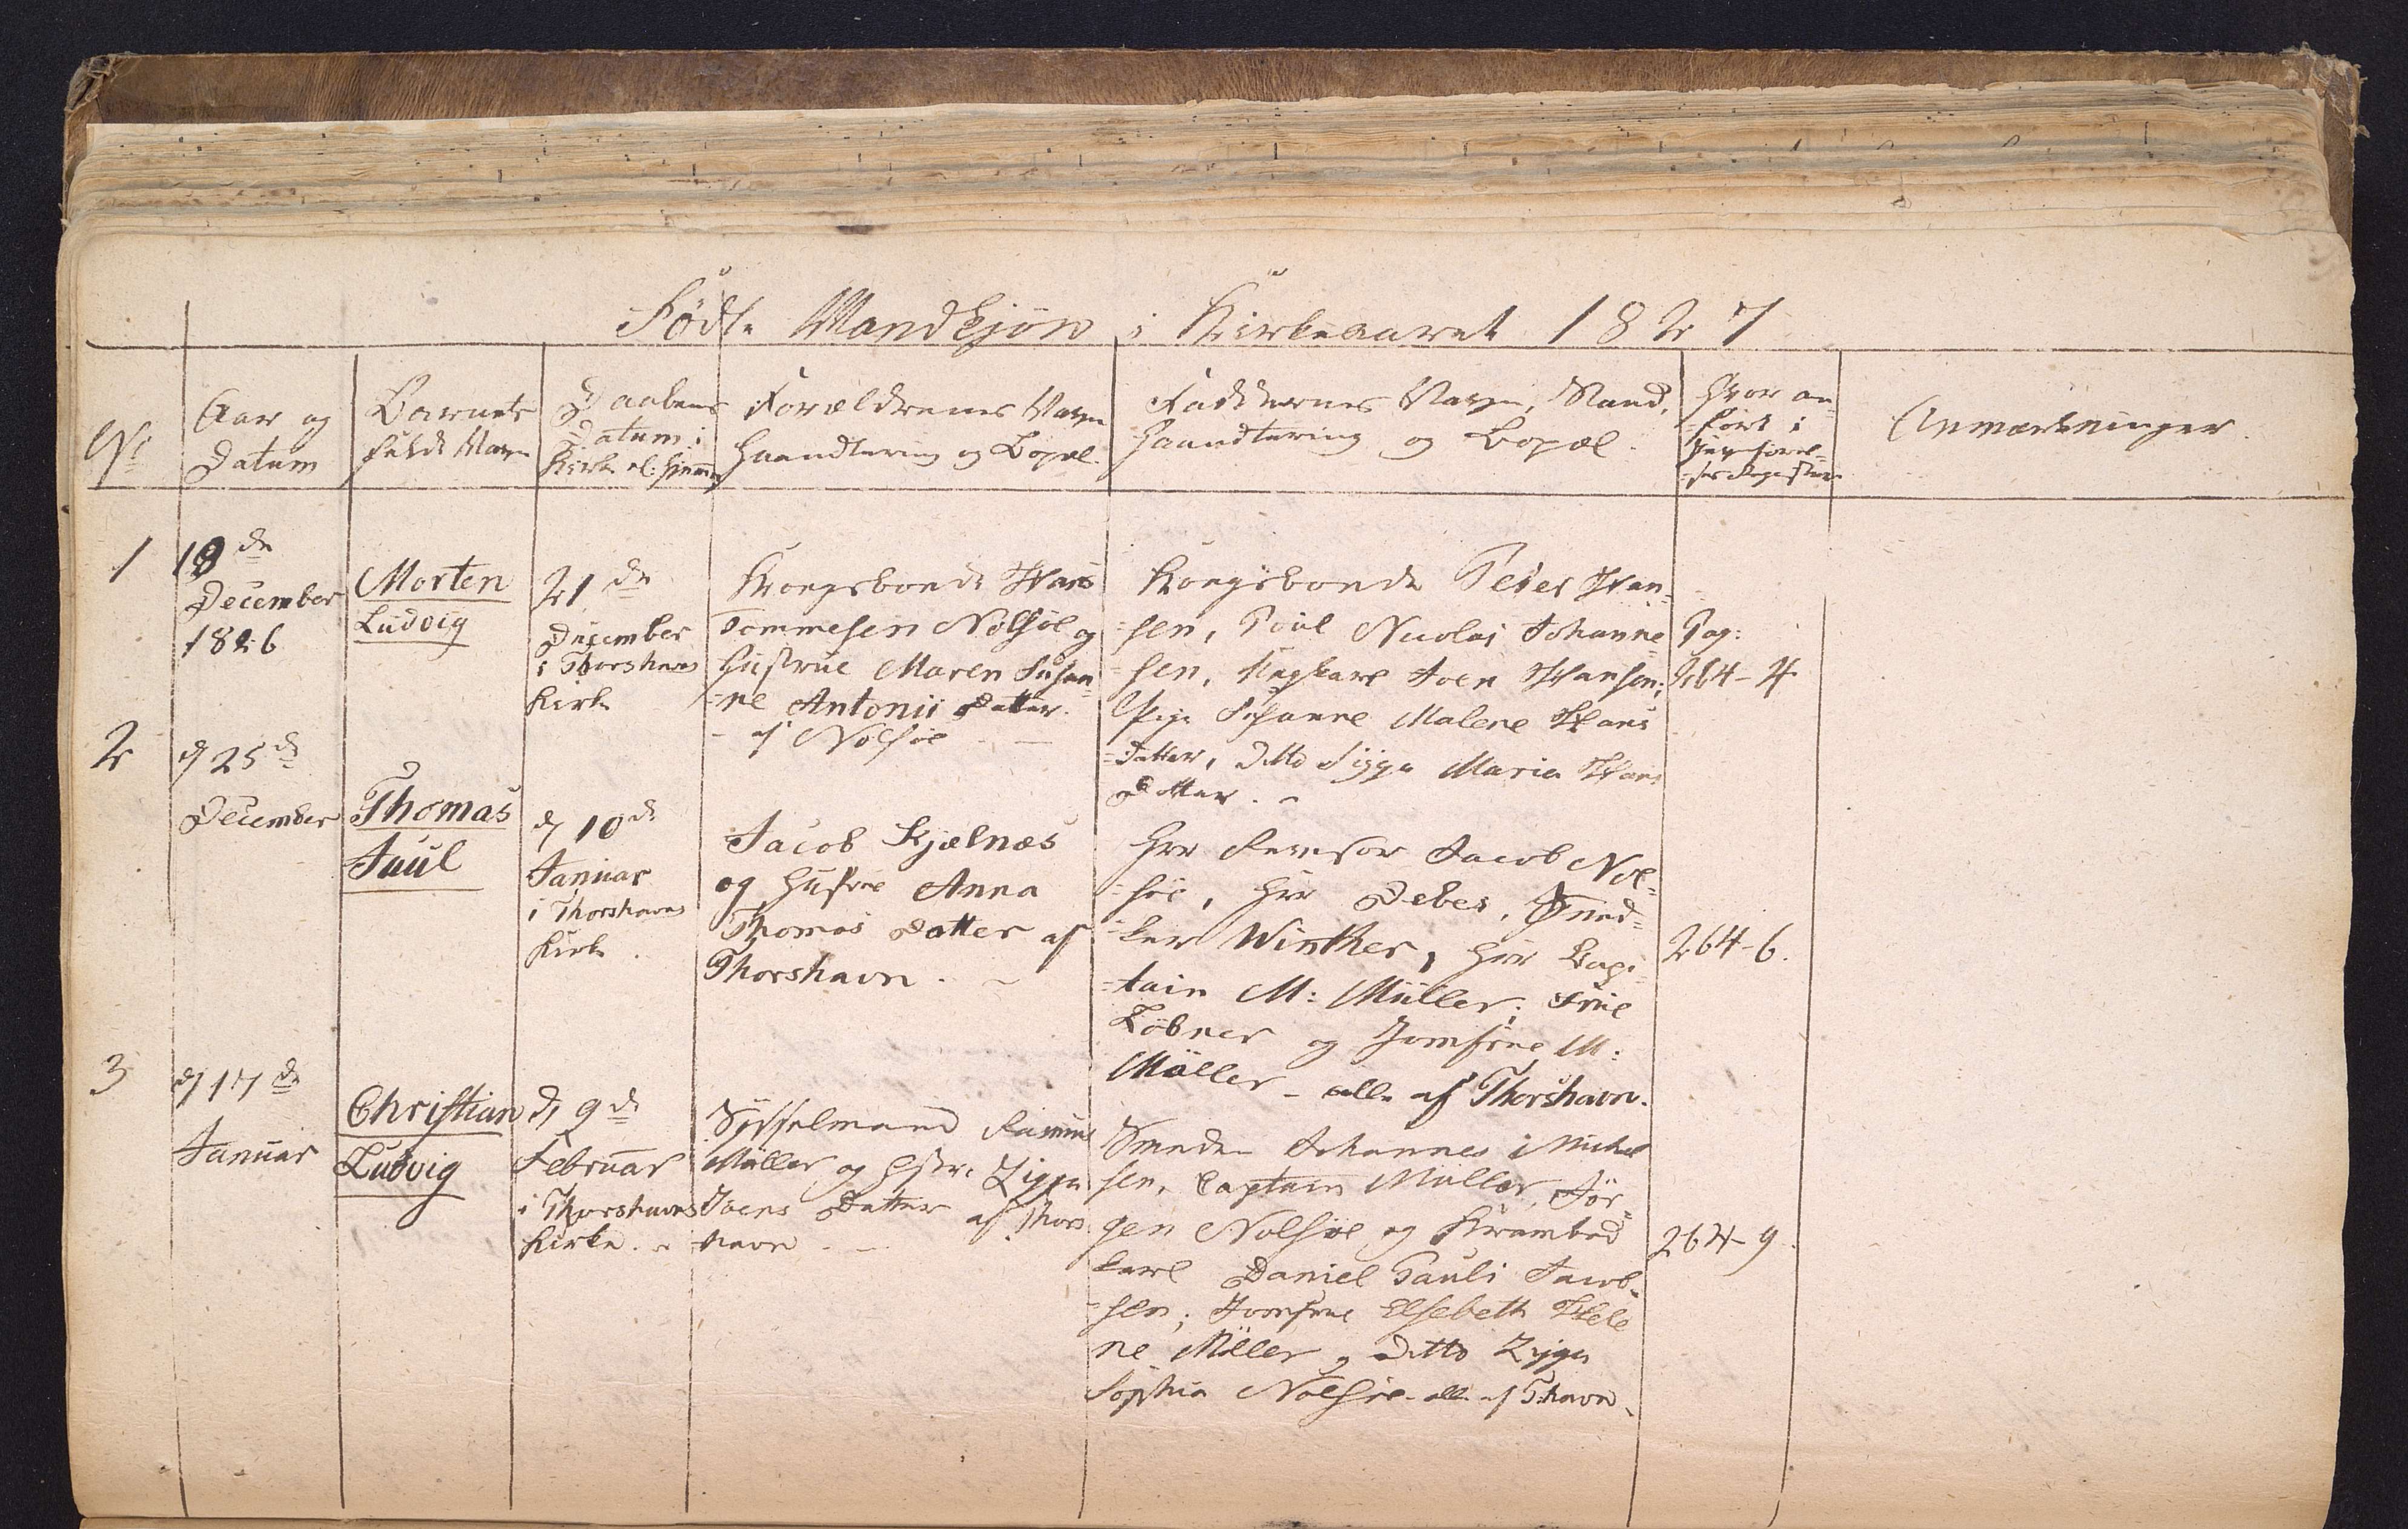 Födte Mandkjön i Kirkeaaret 1827
No
Aar og
Datum
Barnets
fulde Navn
Daabens
Datum i
Kirke el: Hjemme
Forældrenes Navn
Haandtering og Bopæl.
Faddernes Navn, Stand,
Haandtering og Bopæl.
Hvor an=
=fört i
Jevnförel=
=ses Registeret
Anmærkninger.
1
18de
December
1826
Morten
Ludvig
21de
December
i Thorshavns
Kirke
Kongsbonde Hans
Tommesen Nolsöe og
Hustrue Maren Susan=
=ne Antonii Datter.
- af Nolsöe - -
Kongsbonde Peder Han=
=sen, Poul Nicolai Johanne=
=sen, Joen Hansen;
Pige Susanne Malene Hans
=Datter, Ditto Sigga Maria Hans
Datter. -
Pag:
264-4
2
d 25de
December
Thomas
Juul
d 10de
Januar
i Thorshavns
Kirke.
Jacob Kjælnæs
og Hustrue Anna
Thomas Datter af
Thorshavn. -
Hrr Revisor Jacob Nol=
=söe, Hrr Debes, Sned=
=ker Winther, Hrr Capi=
=tain M: Müller; Frue
Löbner og Jomfrue M:
Müller - alle af Thorshavn.
264-6.
3
d 17de
Januar
Christian
Ludvig
d 9de
Februar
i Thorshavns
Kirke. -
Sysselmand Rasmus
Müller og Hstr: Zigga
Joens Datter af Thors
havn. -
Smeden Johannes Michel
sen, Captain Müller, Jör=
gen Nolsöe og Krambod
karl Daniel Pauli Jacob=
=sen; Jomfrue Elsebeth Hele
ne Müller og Ditto Zigga
Sophia Nolsöe - alle af Thavn.
264-9.